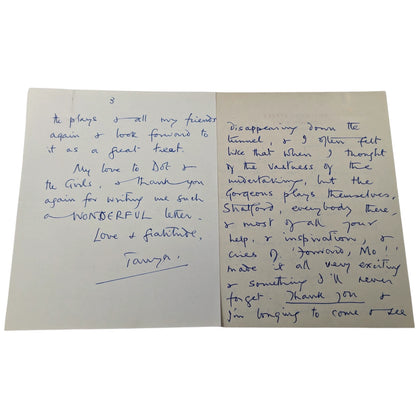 8
the plays & all my friends
again & look forward to
it as a great treat.
My love to Dot &
the Girls, & thank you
again for writing me such
a WONDERFUL letter.
Love & Gratitude,
Tanya.
disappearing down the
tunnel, & I often felt
like that when I thought
of the vastness of the
undertaking, but the
Gorgeous plays themselves,
Stratford, everybody there,
& most of all your
help, & inspiration, &
cries of "Forward, Mo!"
made it all very exciting
& something I'll never
forget Thank you &
I'm longing to come & see